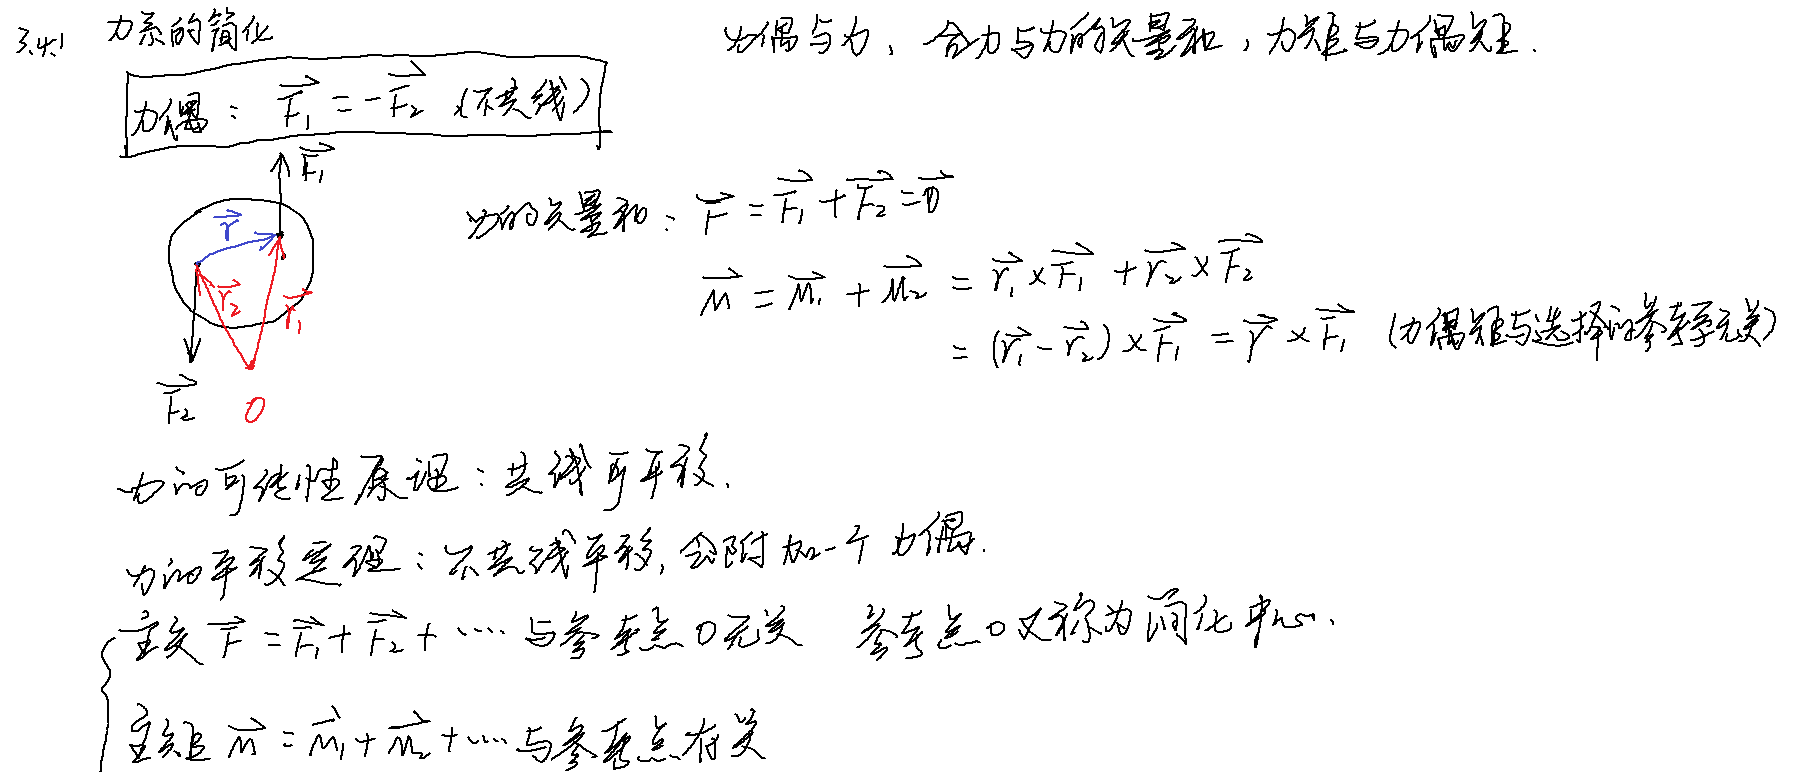 3.4.1 力系的简化
力偶与力，合力与力的矢量和，力矩与力偶矩.
力偶： F₁ = -F₂ (不共线)
F₁
r
r₂
r₁
F₂
O
力的矢量和： F = F₁ + F₂ = 0
M = M₁ + M₂ = r₁ × F₁ + r₂ × F₂
= (r₁ - r₂) × F₁ = r × F₁ (力偶矩与选择的参考系无关)
力的可传性原理：共线可平移.
力的平移定理：不共线平移,会附加一个力偶.
主矢 F = F₁ + F₂ + ···· 与参考点O无关 参考点O又称为简化中心.
主矩 M = M₁ + M₂ + ···· 与参考点有关